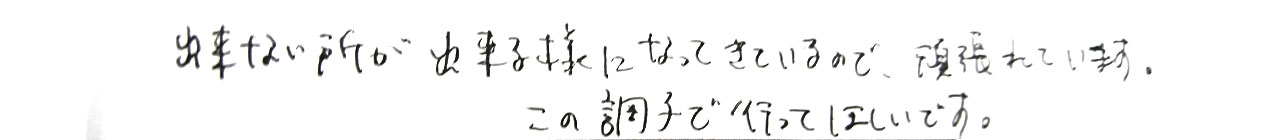 出来ない所が出来る様になってきているので、頑張れています。
この調子で行ってほしいです。